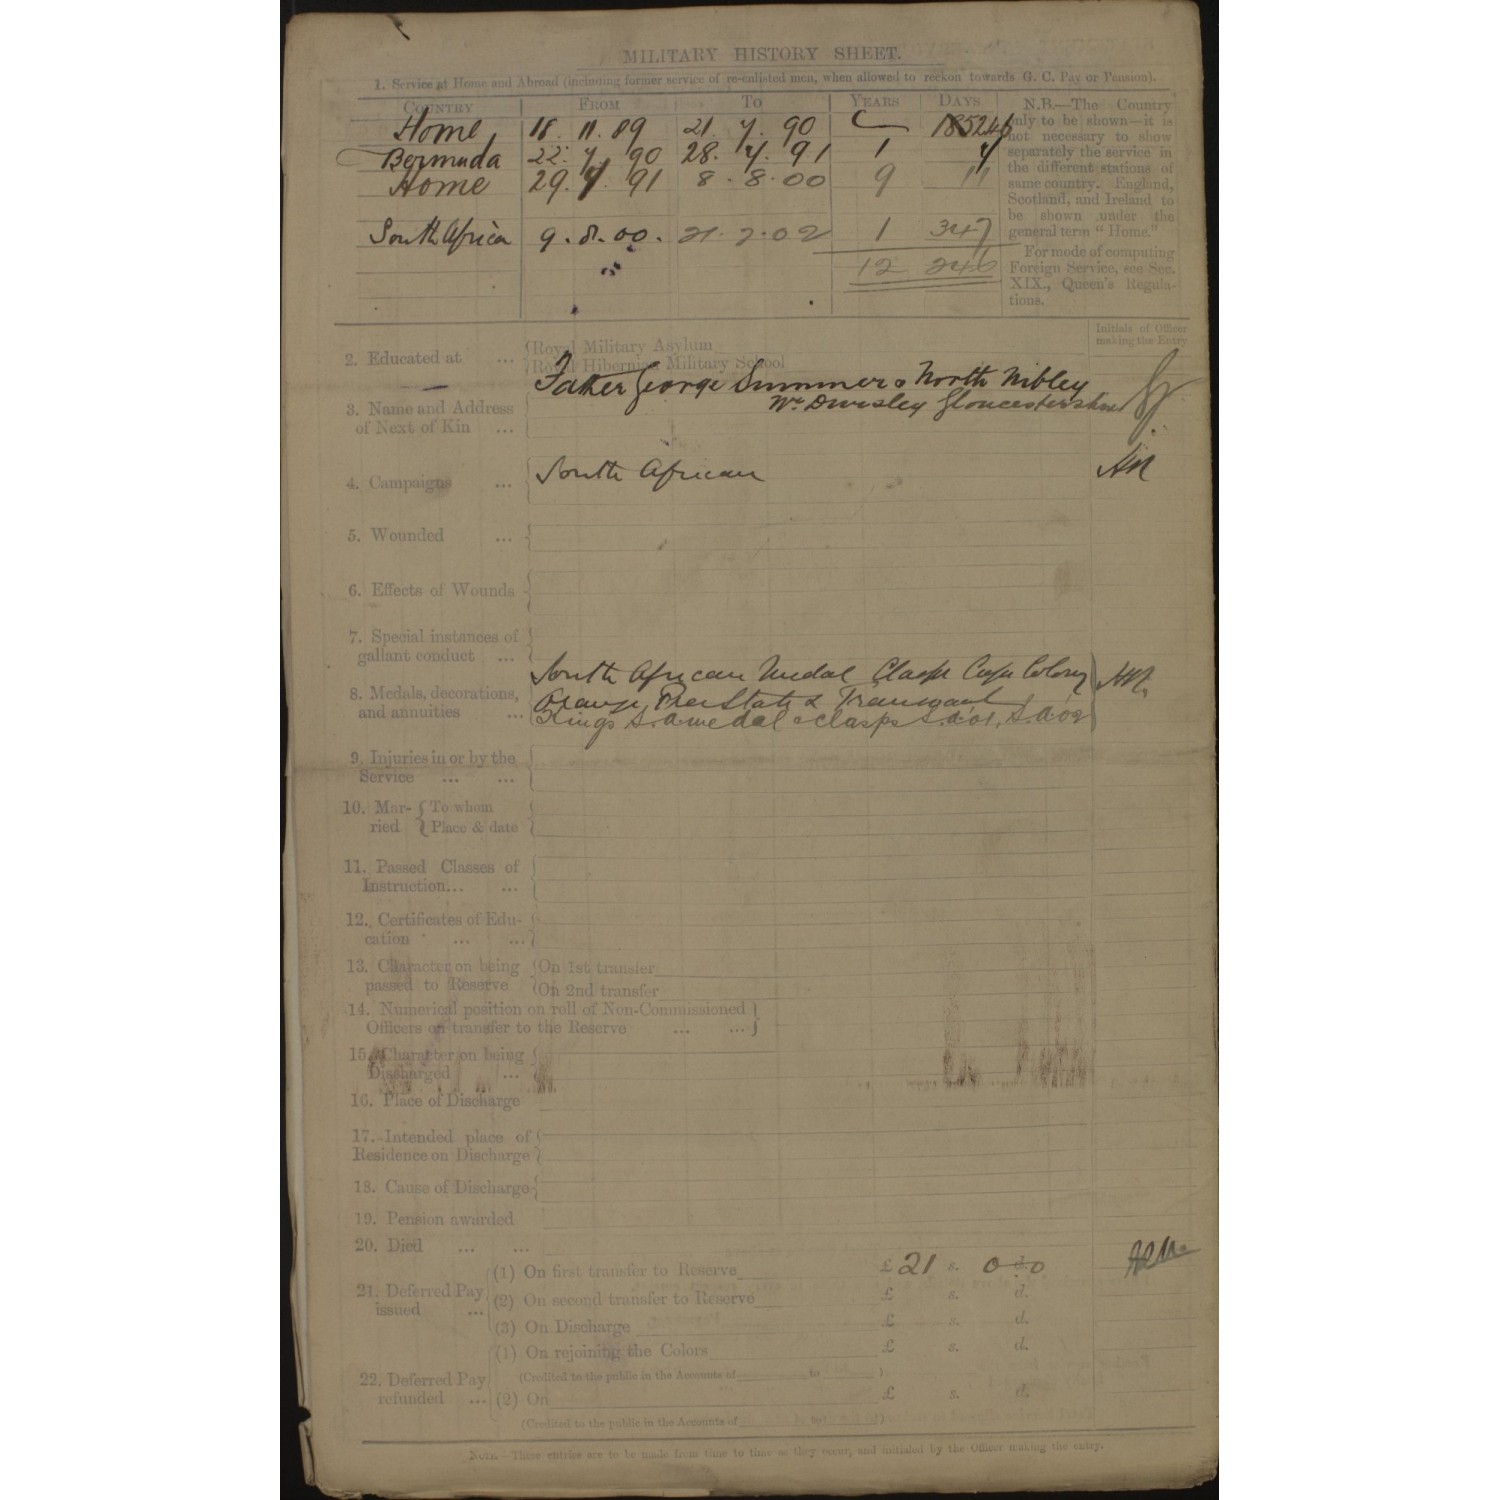 MILITARY HISTORY SHEET.
1. Service at Home and Abroad (including former service of re-enlisted men, when allowed to reckon towards G. C. Pay or Pension).
COUNTRY FROM TO YEARS DAYS
Home 18. 11. 89 21. 7. 90 246
Bermuda 22. 7. 90 28. 7. 91 1 7
Home 29. 7. 91 8. 8. 00 9 11
South Africa 9. 8. 00. 21. 7. 02 1 347
12 246
N.B.—The Country
only to be shown—it is
not necessary to show
separately the service in
the different stations of
same country. England,
Scotland, and Ireland to
be shown under the
general term "Home."
For mode of computing
Foreign Service, see Sec.
XIX., Queen's Regula-
tions.
Initials of Officer
making the Entry
2. Educated at ... Royal Military Asylum
Royal Hibernian Military School
3. Name and Address
of Next of Kin ...
Father George Summers North Nibley
Nr. Dursley Gloucestershire
4. Campaigns ... South African
5. Wounded ...
6. Effects of Wounds
7. Special instances of
gallant conduct ...
8. Medals, decorations,
and annuities ...
South African Medal Clasps Cape Colony
Orange Free State & Transvaal
King's S.A medal & clasps S.A 01, S.A 02
9. Injuries in or by the
Service ... ...
10. Mar-ried { To whom
Place & date
11. Passed Classes of
Instruction... ...
12. Certificates of Edu-
cation ... ...
13. Character on being
passed to Reserve
On 1st transfer
On 2nd transfer
14. Numerical position on roll of Non-Commissioned
Officers on transfer to the Reserve ... ...
15. Character on being
Discharged ...
16. Place of Discharge
17. Intended place of
Residence on Discharge
18. Cause of Discharge
19. Pension awarded
20. Died ... ...
21. Deferred Pay
issued ...
(1) On first transfer to Reserve £ 21 s. 0 d. 0
(2) On second transfer to Reserve £ s. d.
(3) On Discharge £ s. d.
22. Deferred Pay
refunded ...
(1) On rejoining the Colors £ s. d.
(Credited to the public in the Accounts of to )
(2) On £ s. d.
(Credited to the public in the Accounts of to )
NOTE.—These entries are to be made from time to time as they occur, and initialed by the Officer making the entry.